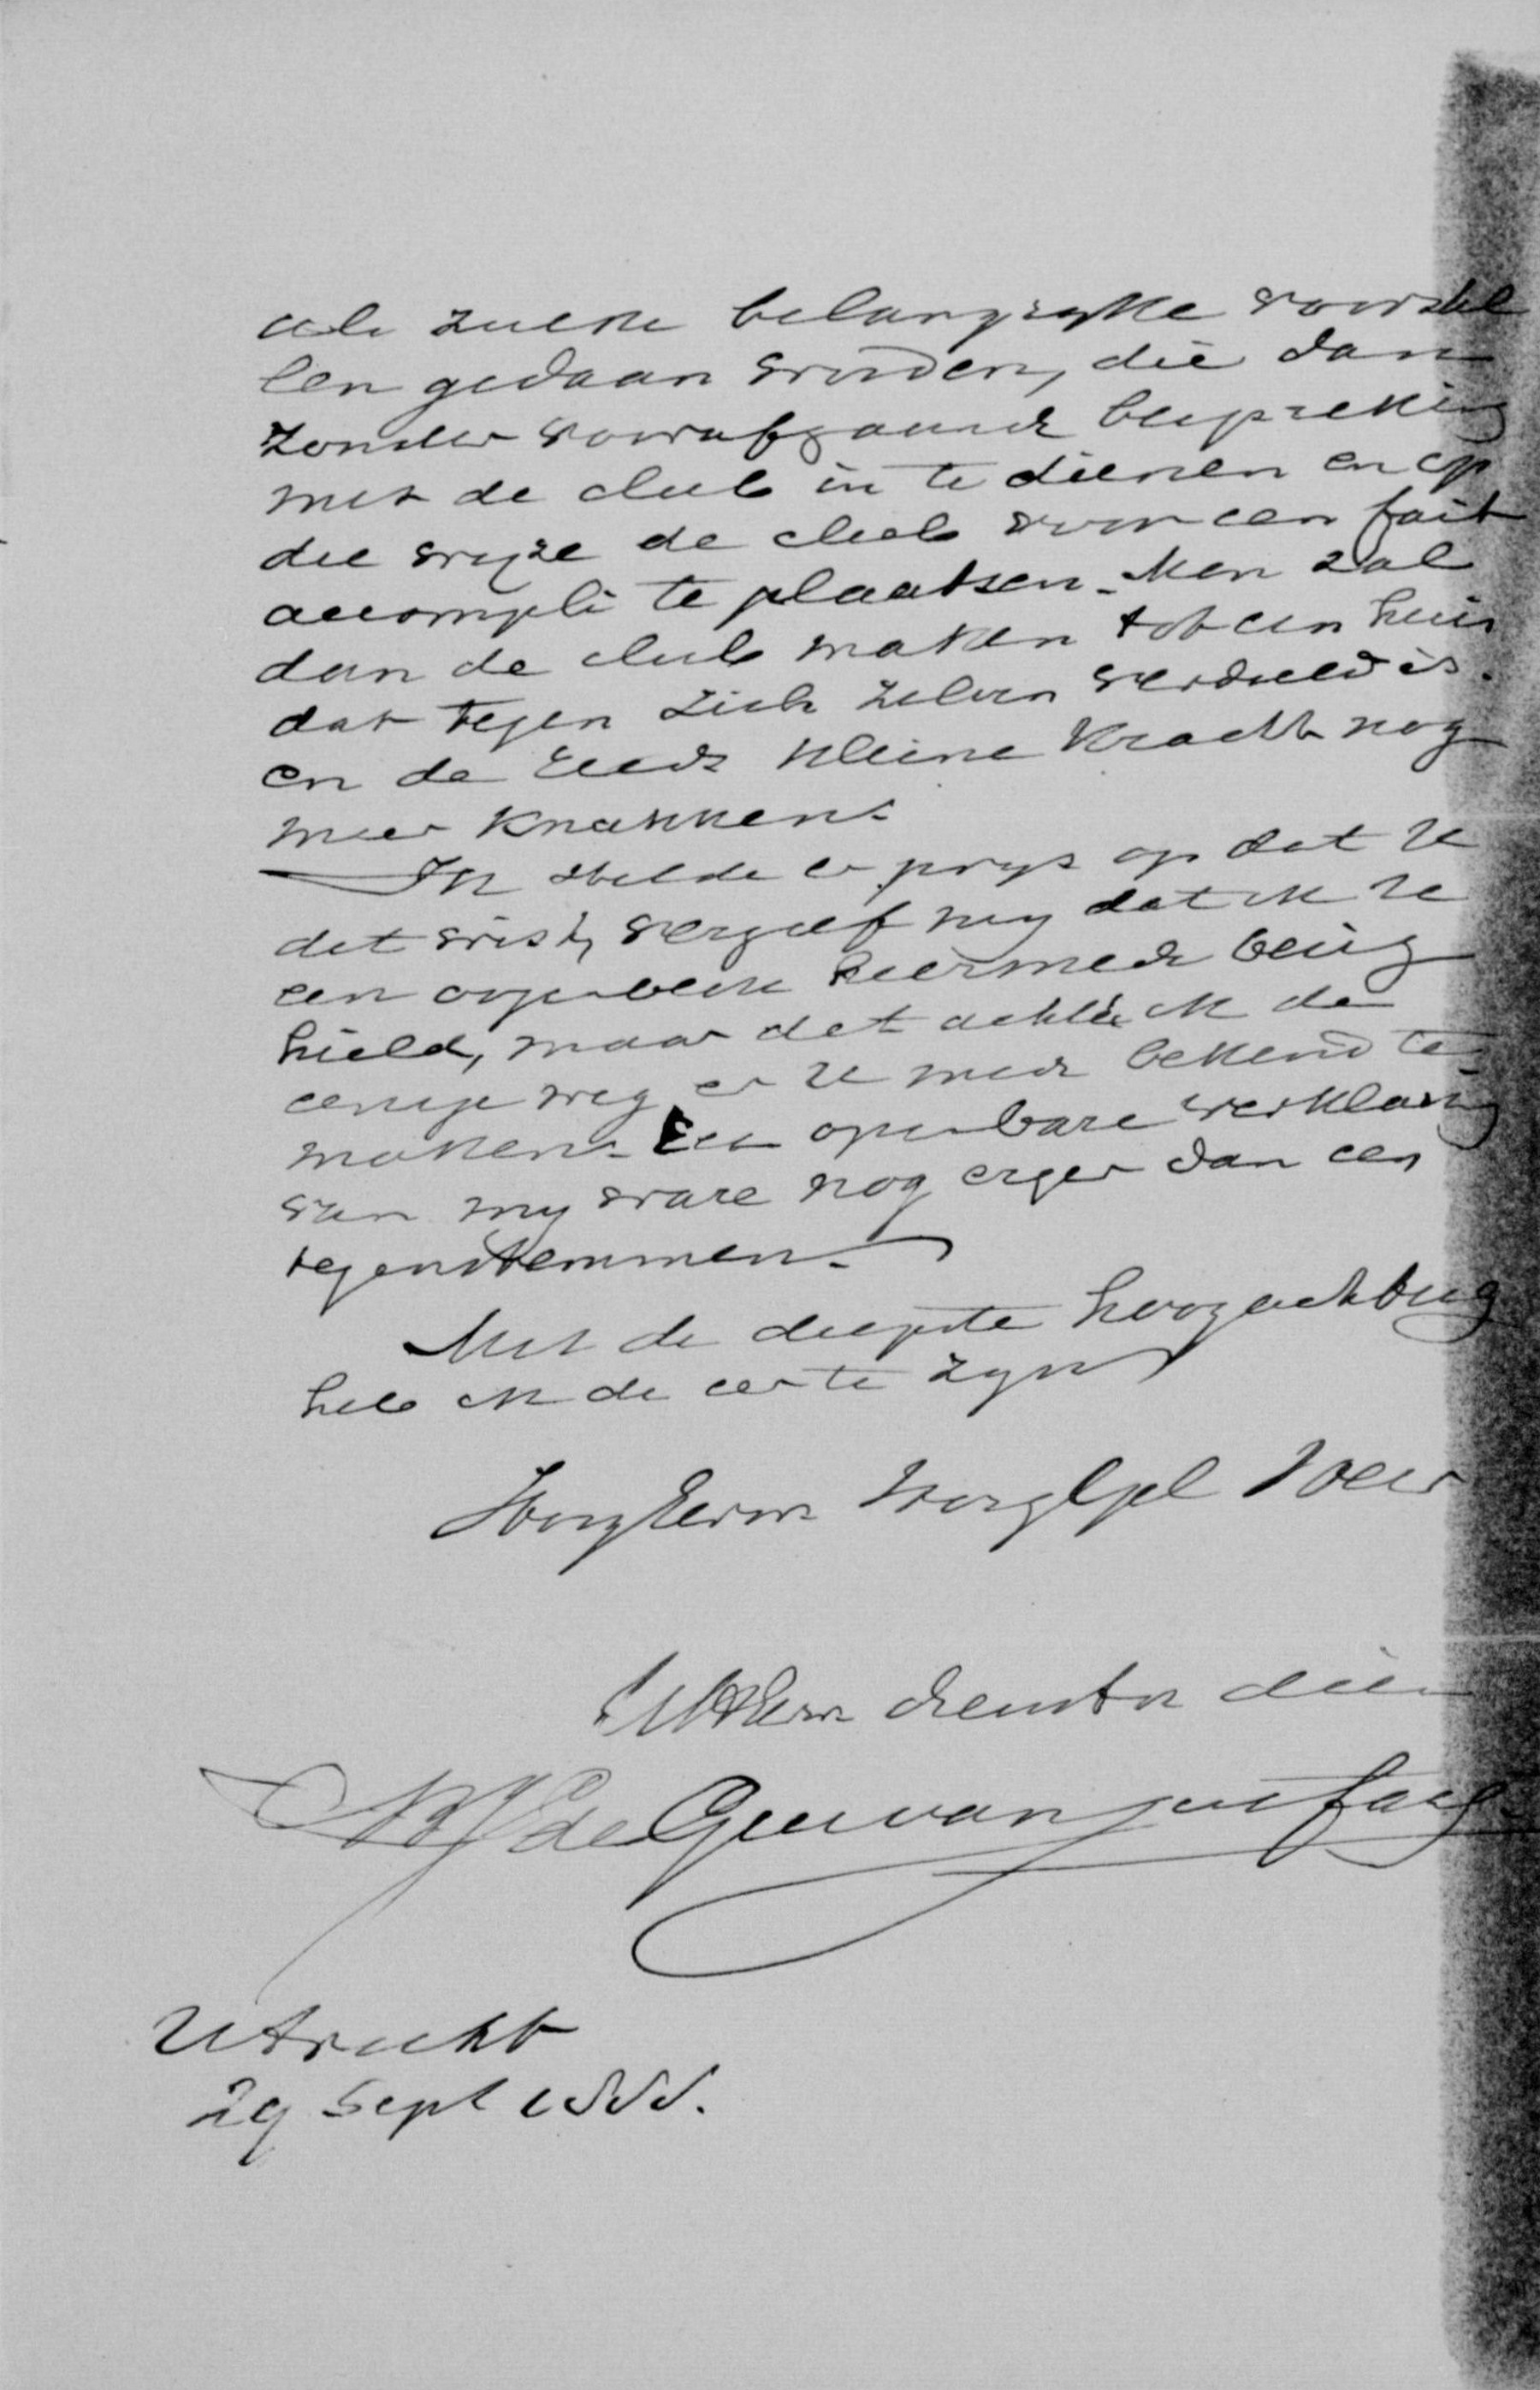 als zulke belangrijke voorstel
len gedaan worden, die dan
zonder voorafgaande bespreking
met de club in te dienen en op
die wijze de club voor een fait
accompli te plaatsen. Men zal
dan de club maken tot een huis
dat tegen zich zelven verdeeld is.
en de reeds kleine kracht nog
meer knakken.
Ik stelde er prijs op dat U
dit wist, vergeef mij dat ik U
een oogenblik hiermede bezig
hield, maar dit achtte ik de
eenige weg er U mede bekend te
maken. Een openbare verklaring
van mij ware nog erger dan een
tegenstemmen.
Met de diepste hoogachting
heb ik de eer te zijn
HoogEerw HoogGel Heer
UWHEerw dienstw dien
de Geer van Jutfaas
Utrecht
29 Sept 1888.